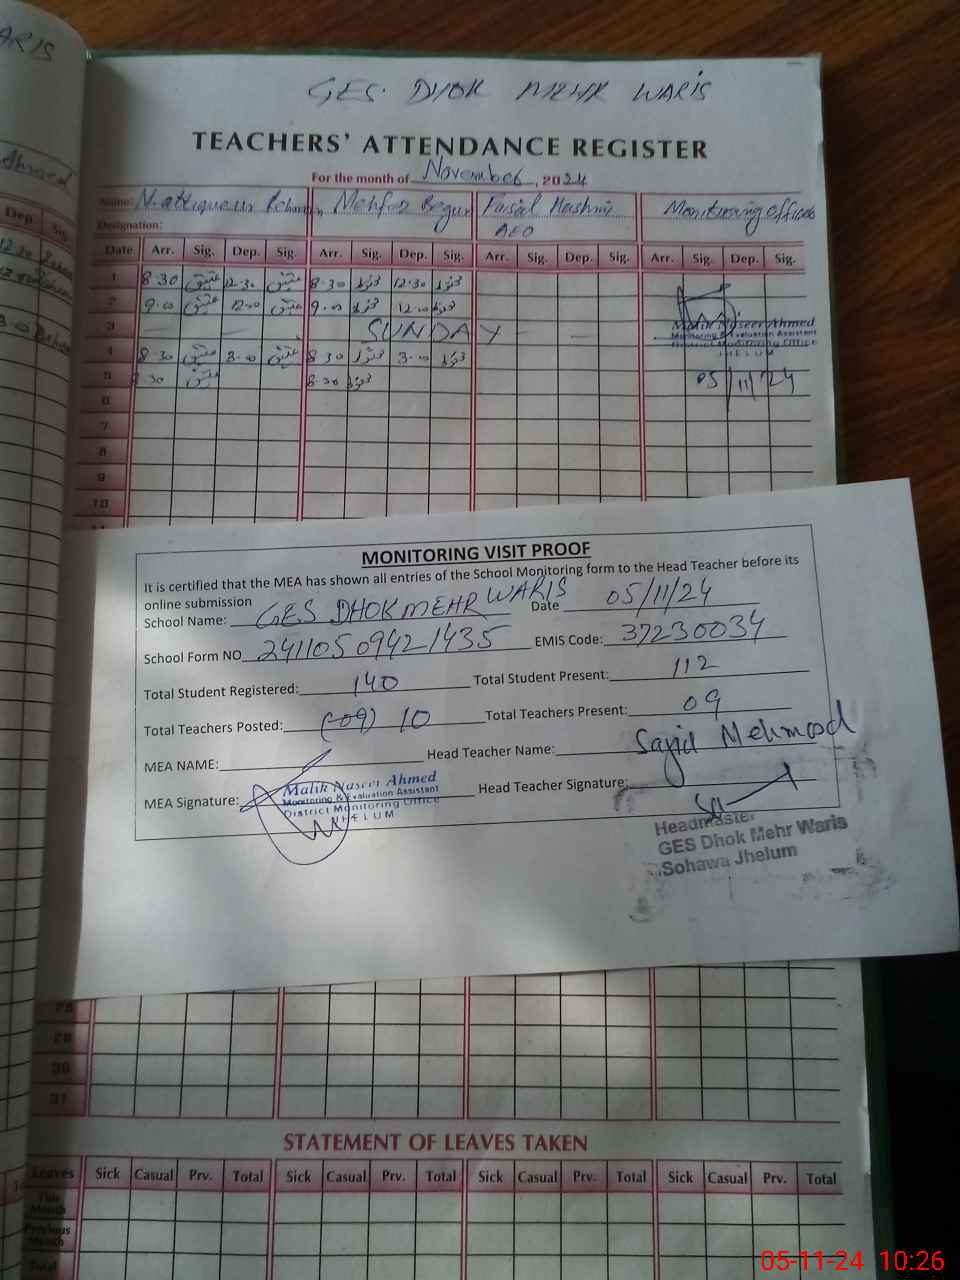 ARIS
GES. DHOK MEHR WARIS
TEACHERS' ATTENDANCE REGISTER
For the month of November, 2024
Name: M. attique ur Rehman Mehfooz Begum Faisal Hashmi Monitoring Officer
Designation: AEO
Date Arr. Sig. Dep. Sig. Arr. Sig. Dep. Sig. Arr. Sig. Dep. Sig. Arr. Sig. Dep. Sig.
1 8.30 12.30 8.30 12.30
2 9.00 12.00 9.00 12.00
3 SUNDAY
Malik Naseer Ahmed
Monitoring & Evaluation Assistant
District Monitoring Office
JHELUM
4 8.30 3.00 8.30 3.00
5 8.30 8.30 05/11/24
6
7
8
9
10
MONITORING VISIT PROOF
It is certified that the MEA has shown all entries of the School Monitoring form to the Head Teacher before its
online submission
School Name: GES DHOK MEHR WARIS Date 05/11/24
School Form NO 24110509421435 EMIS Code: 37230034
Total Student Registered: 140 Total Student Present: 112
Total Teachers Posted: (09) 10 Total Teachers Present: 09
MEA NAME: Head Teacher Name: Sajid Mehmood
MEA Signature: Head Teacher Signature:
Malik Naseer Ahmed
Monitoring & Evaluation Assistant
District Monitoring Office
JHELUM
Headmaster
GES Dhok Mehr Waris
Sohawa Jhelum
29
30
31
STATEMENT OF LEAVES TAKEN
Leaves Sick Casual Prv. Total Sick Casual Prv. Total Sick Casual Prv. Total Sick Casual Prv. Total
This Month
Previous Month
Total
05-11-24 10:26